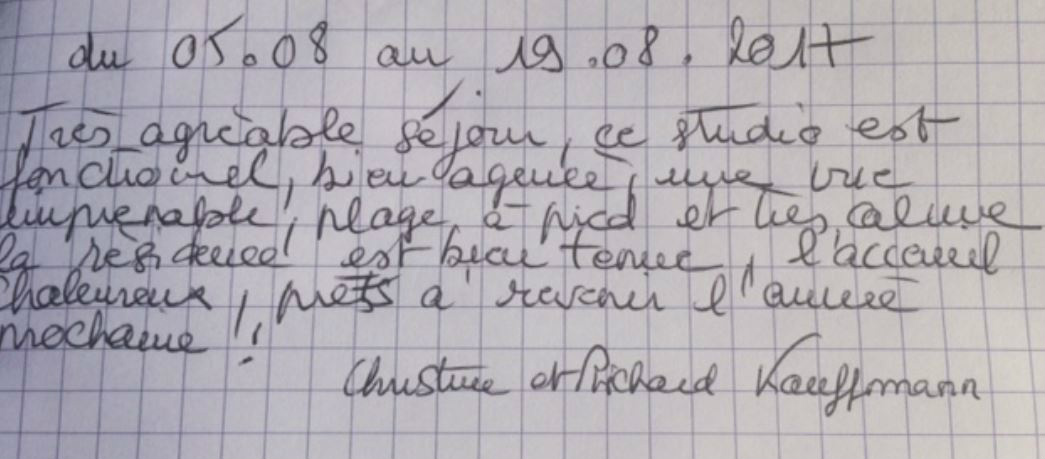 du 05.08 au 19.08.2017
Très agréable séjour, ce studio est
fonctionnel, bien agencé, une vue
imprenable, plage à pied et très calme
la résidence est bien tenue, l'accueil
chaleureux, prêts à revenir l'année
prochaine !!
Christine et Richard Kauffmann